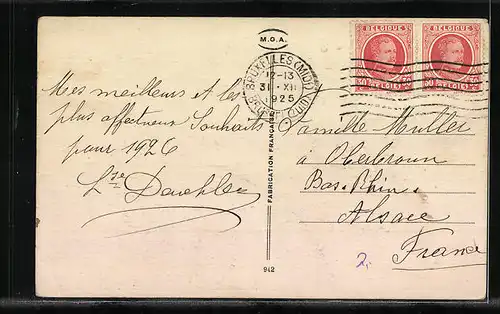 M.O.A.
BELGIQUE BELGIQUE
BRUXELLES (MIDI)
12-13
31 XII
1925
BRUSSEL (ZUID)
BELGIË BELGIË
Mes meilleurs et les
plus affectueux Souhaits
pour 1926
Lse Daehler
FABRICATION FRANÇAISE
942
Famille Muller
à Oberbronn
Bas-Rhin
Alsace
France
2,